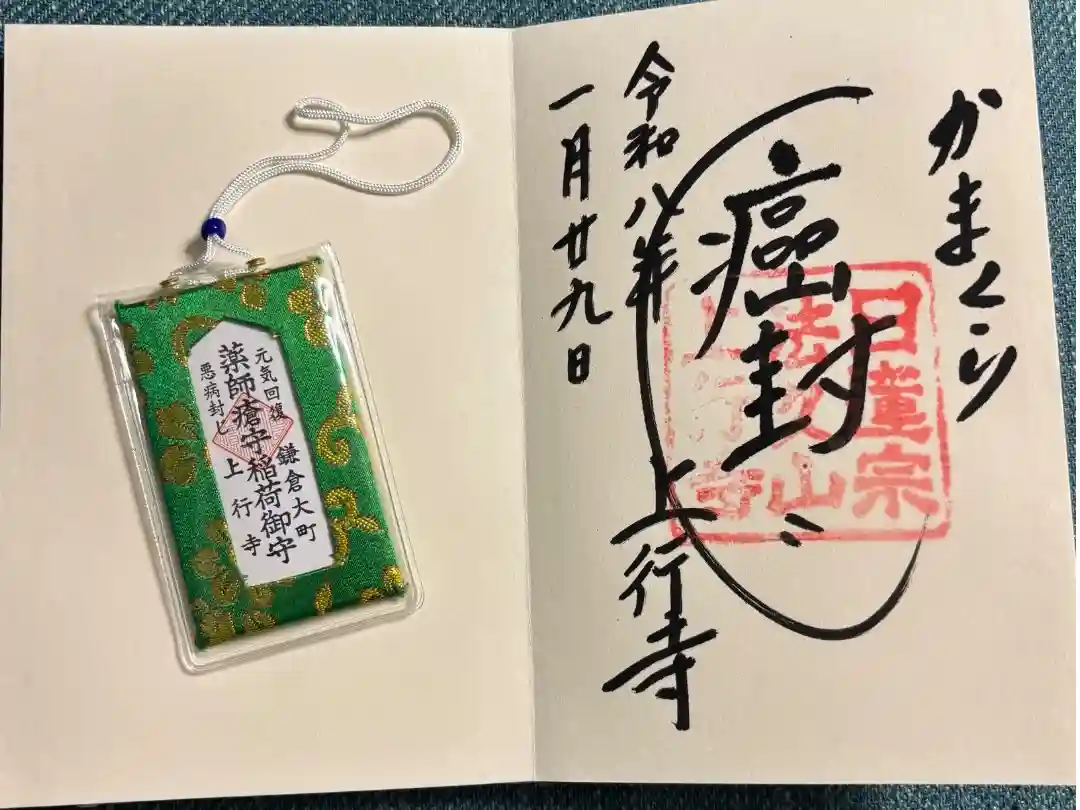 かまくら
癌封じ
令和八年
一月廿九日
上行寺
日蓮宗
法久山
上行寺
元気回復
悪病封じ
薬師瘡守稲荷御守
鎌倉大町
上行寺